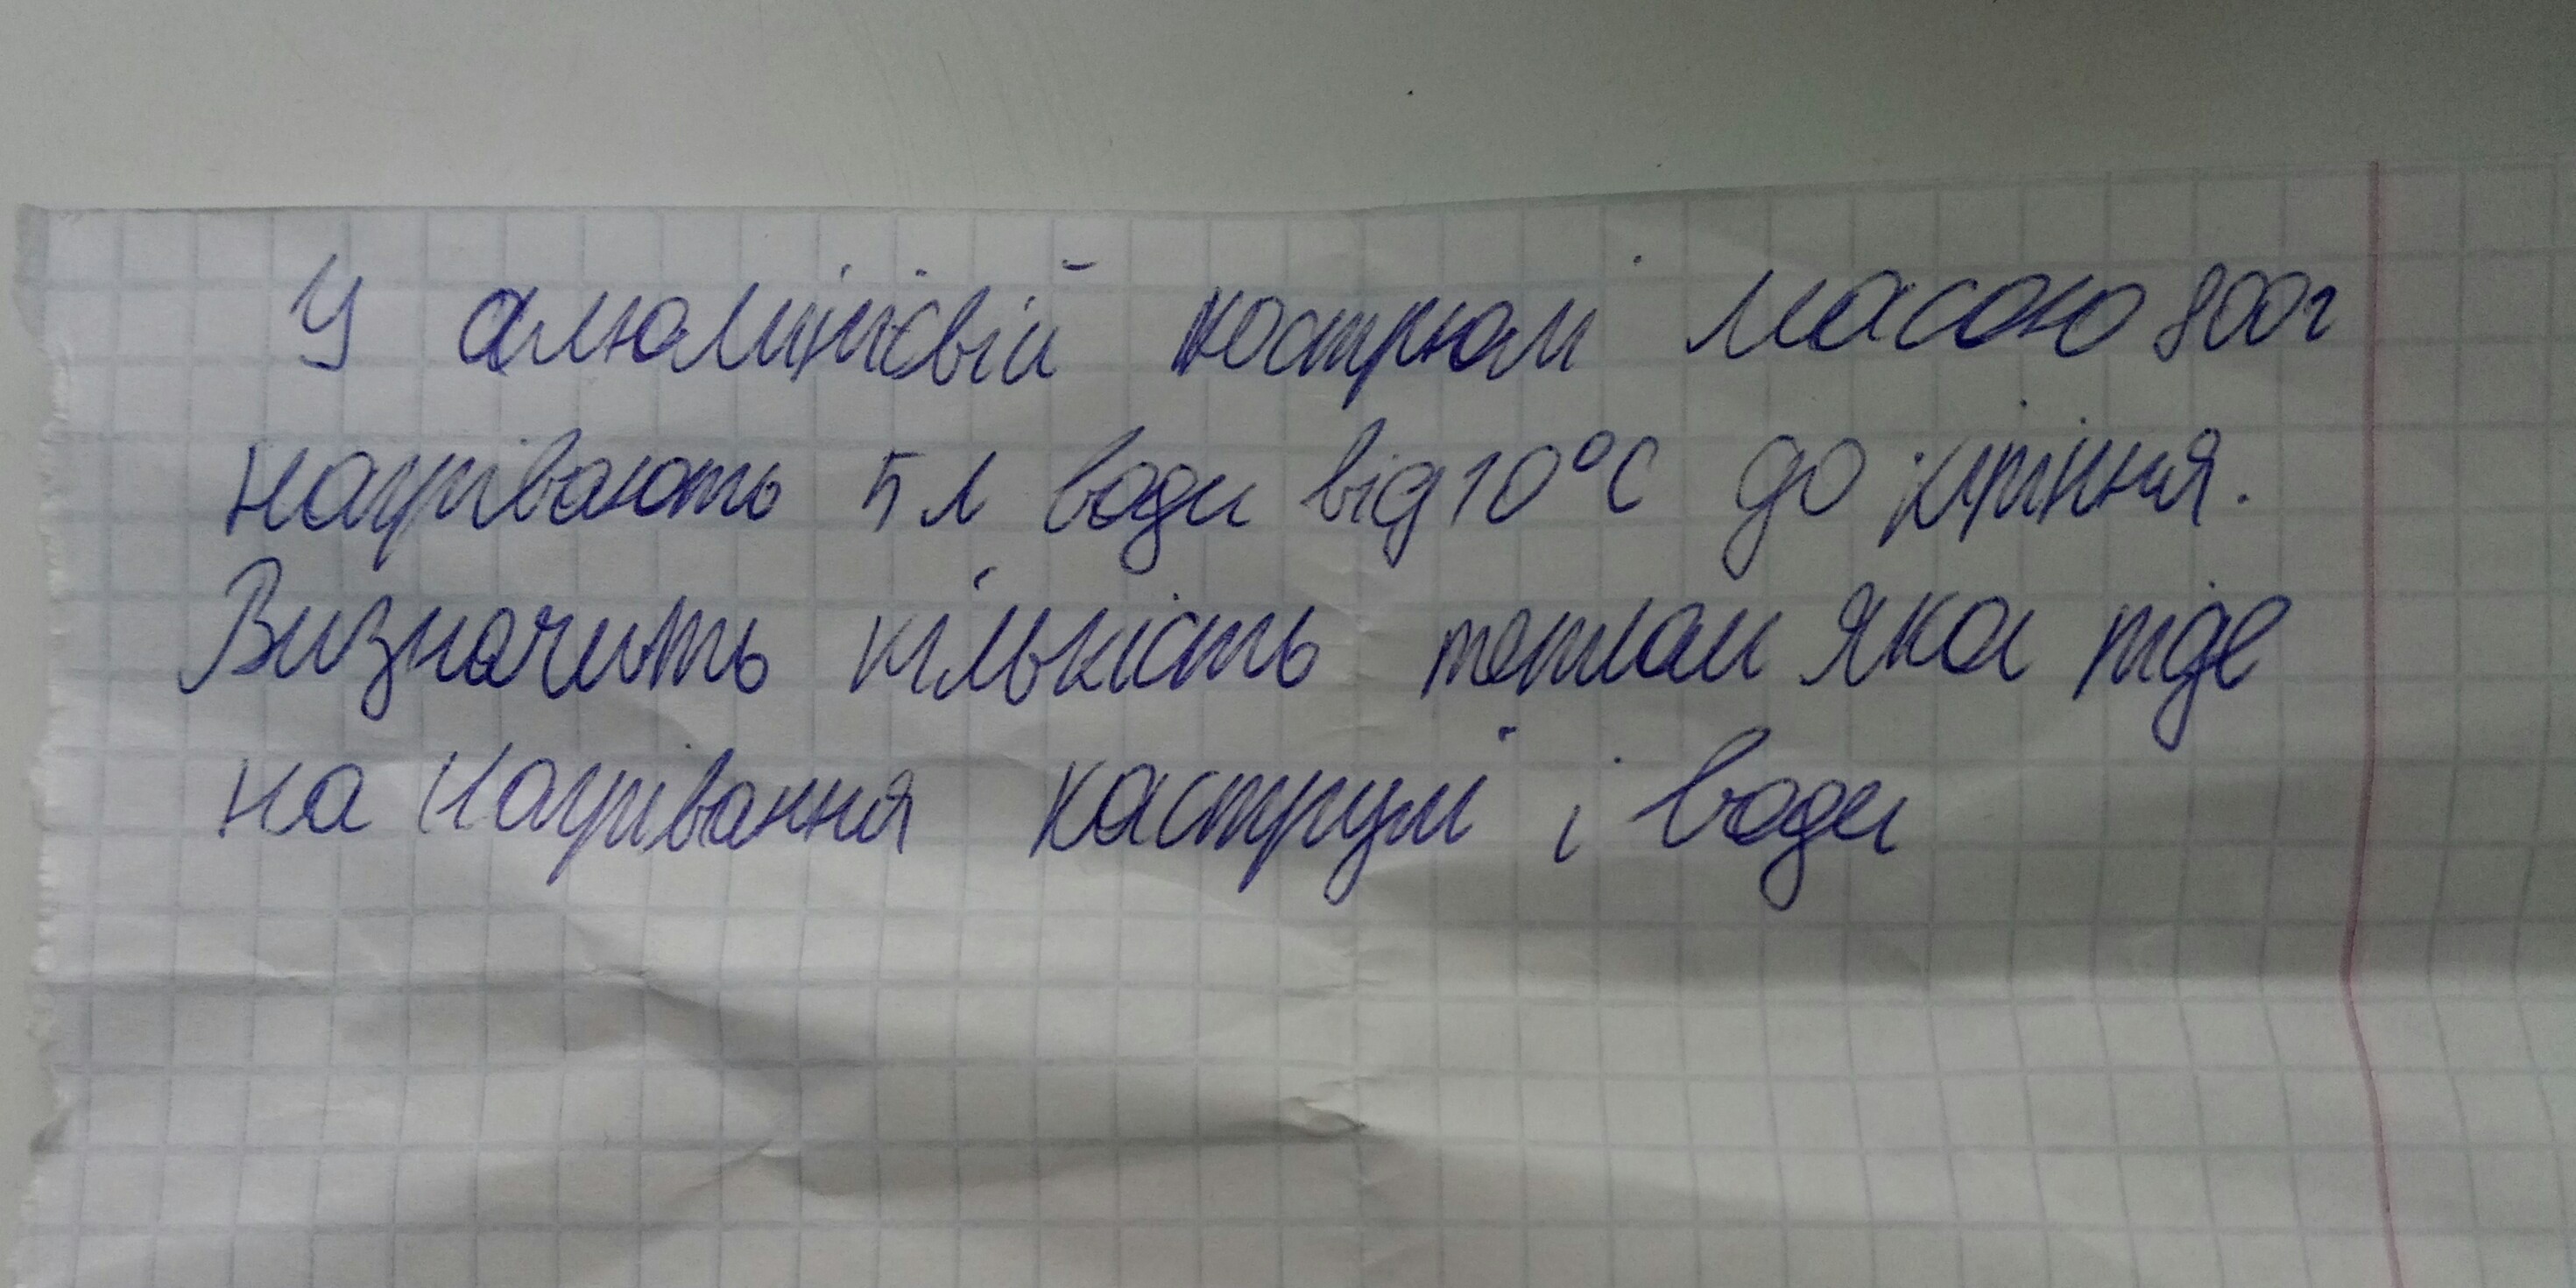 У алюмінієвій кастрюлі масою 800г
нагрівають 5 л води від 10°С до кіпіння.
Визначить кількість теплаи яка піде
на нагрівання каструлі і води